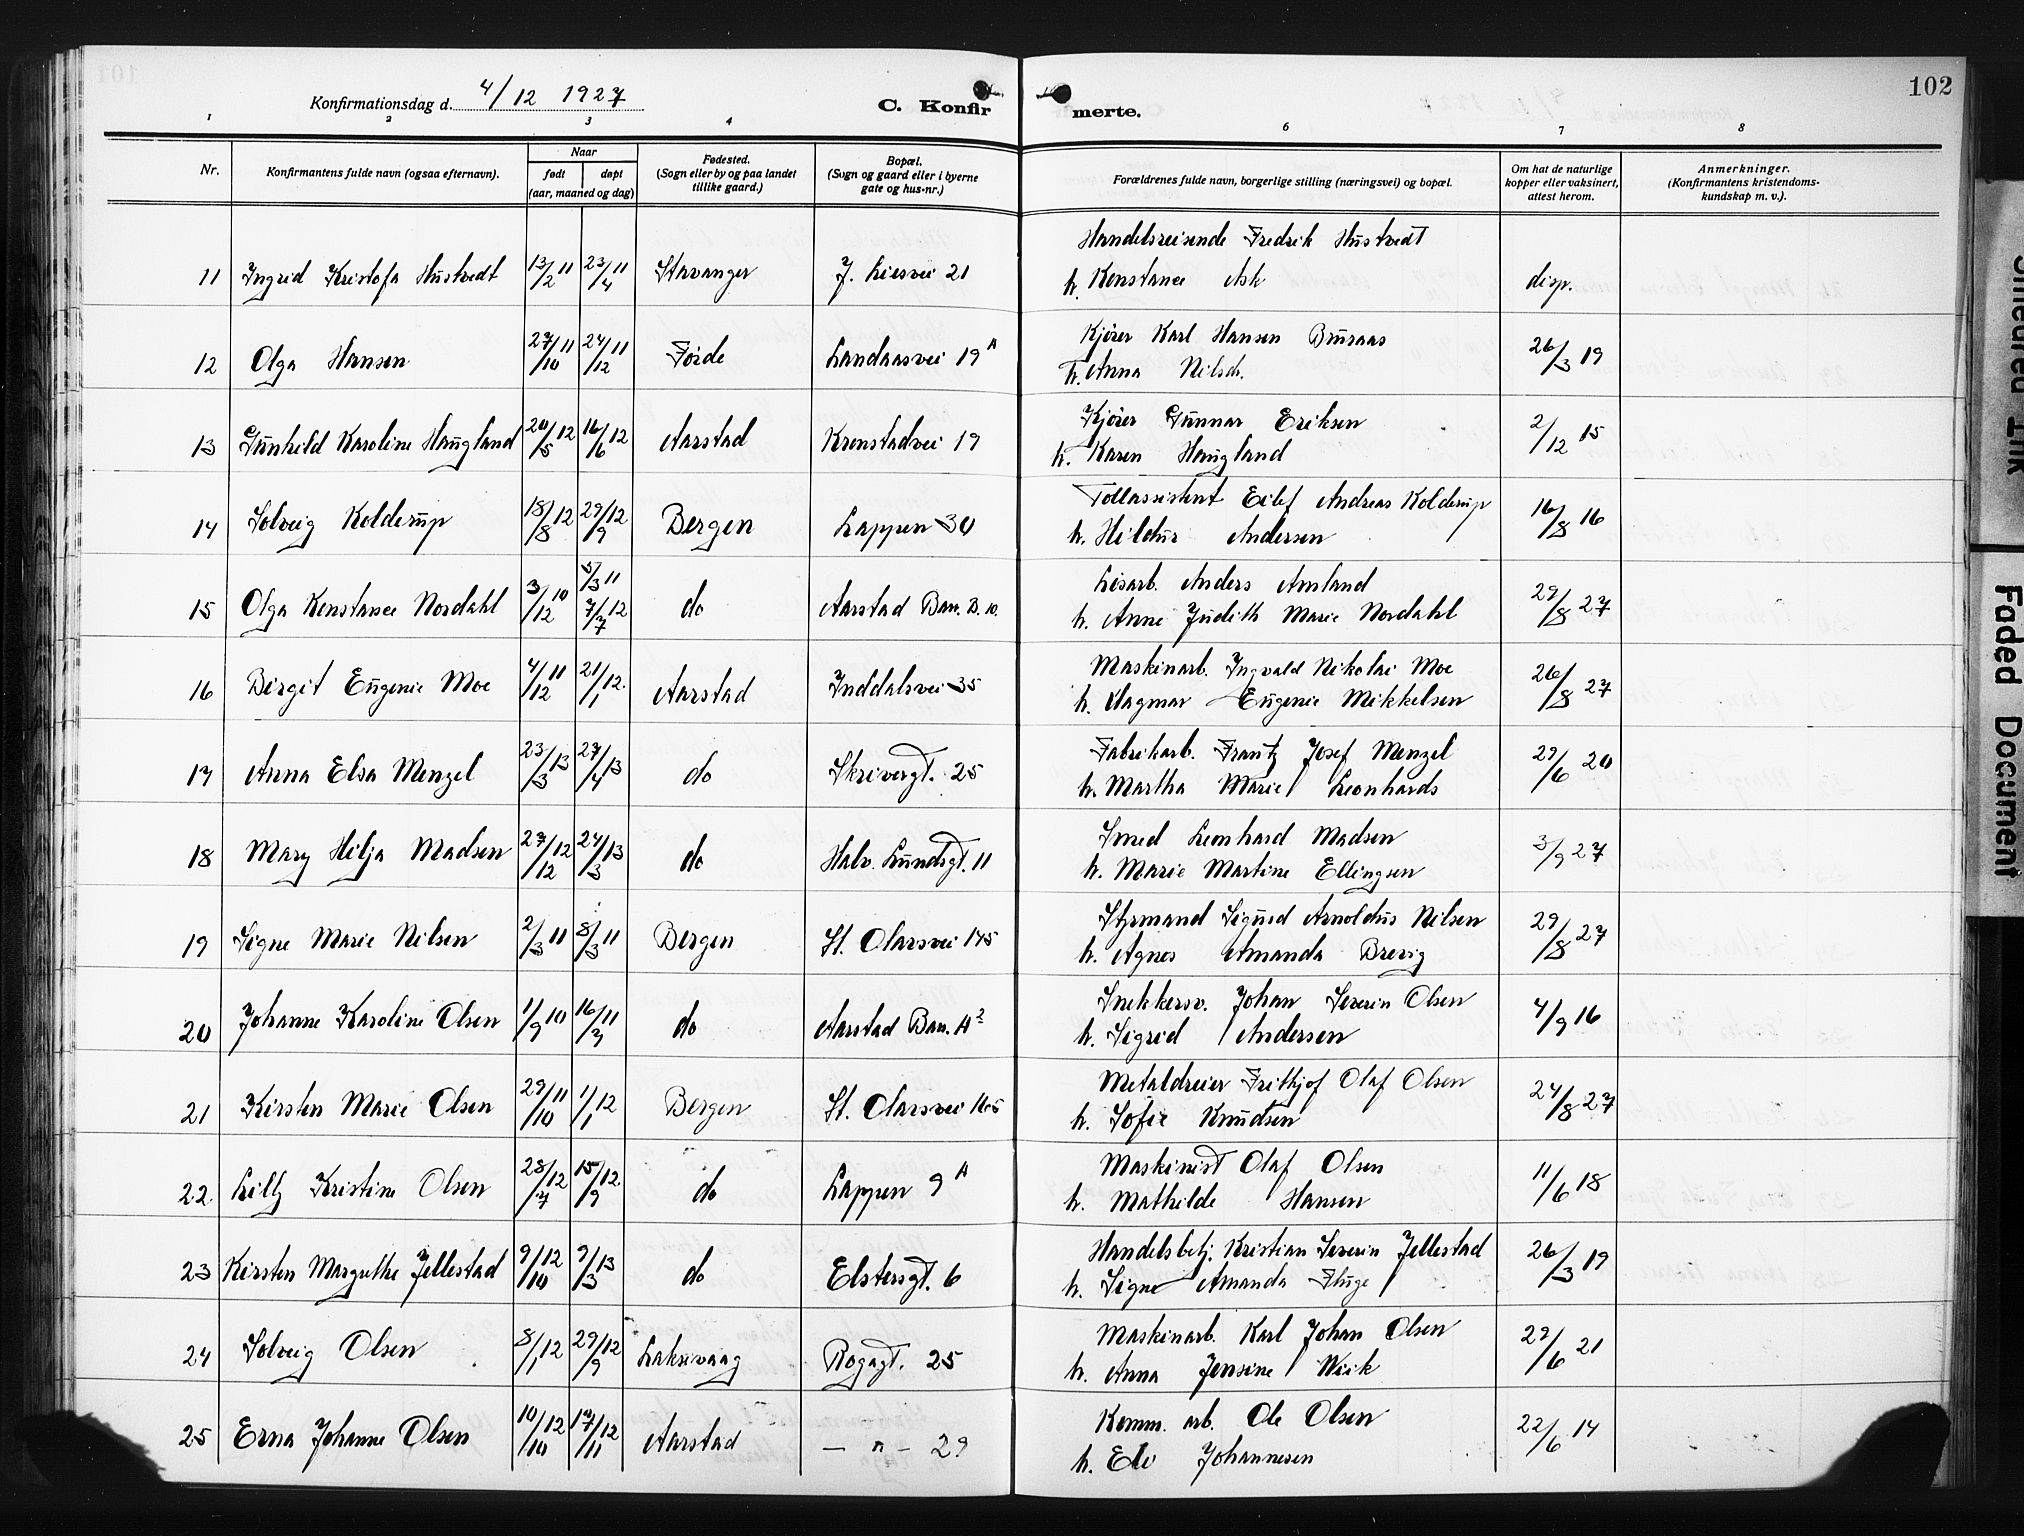 Konfirmationsdag d. 4/12 1927
C. Konfirmerte.
102
1 2 3 4 6 7 8
Nr.
Konfirmantens fulde navn (ogsaa efternavn).
Naar
født døpt
(aar, maaned og dag)
Fødested.
(Sogn eller by og paa landet
tillike gaard.)
Bopæl.
(Sogn og gaard eller i byerne
gate og hus-nr.)
Forældrenes fulde navn, borgerlige stilling (næringsvei) og bopæl.
Om hat de naturlige
kopper eller vaksinert,
attest herom.
Anmerkninger.
(Konfirmantens kristendoms-
kundskap m. v.).
11 Ingrid Kristofa Hustvedt 13/2 11 23/4 11 Stavanger J. Liesvei 21 Handelsreisende Fredrik Hustvedt
h. Konstance Ask disp.
12 Olga Hansen 27/10 11 24/12 11 Førde Landaasvei 19 A Kjører Karl Hansen Bruraas
h. Anna Nilsch. 26/3 19
13 Gunhild Karoline Haugland 20/5 12 16/6 12 Aarstad Kronstadvei 19 Kjører Gunnar Eriksen
h. Karen Haugland 2/12 15
14 Solveig Kolderup 18/8 12 29/9 12 Bergen Lappen 30 Tollassistent Eilef Andreas Kolderup
h. Hildur Andersen 16/8 16
15 Olga Konstance Nordahl 3/12 10 5/3 11 7/7 12 do Aarstad Bar. B. 10. Løsarb. Anders Amland
h. Anne Judith Marie Nordahl 29/8 27
16 Birgit Eugenie Moe 4/12 11 21/1 12. Aarstad Inddalsvei 35 Maskinarb. Ingvald Nikolai Moe
h. Dagmar Eugenie Mikkelsen 26/8 27
17 Anna Elsa Menzel 23/3 13 27/4 13 do Skrivergt. 25 Fabrikarb. Frantz Josef Menzel
h. Martha Marie Leonhards 29/6 20
18 Mary Hilja Madsen 27/12 12 24/3 13 do Halv. Lundsgt. 11 Smed Leonhard Madsen
h. Marie Martine Ellingsen 3/9 27
19 Signe Marie Nilsen 2/3 11 8/3 11 Bergen St. Olavsvei 145 Styrmand Sigurd Arnoldus Nilsen
h. Agnes Amanda Brevig 29/8 27
20 Johanne Karoline Olsen 1/9 10 16/3 11 do Aarstad Bar. A 2 Snekkersv. Johan Severin Olsen
h. Sigrid Andersen 4/9 16
21 Kirsten Marie Olsen 29/10 11 1/1 12 Bergen St. Olavsvei 165 Metaldreier Frithjof Olaf Olsen
h. Sofie Knudsen 24/8 27
22 Lilly Kristine Olsen 28/7 12 15/9 12 do Lappen 9 A Maskinist Olaf Olsen
h. Mathilde Hansen 11/6 18
23 Kirsten Margrethe Jellestad 9/10 12 9/3 13 do Elstersgt. 6 Handelsbetj. Kristian Severin Jellestad
h. Signe Amanda Fluge 26/3 19
24 Solveig Olsen 8/1 12 29/9 12 Laksevaag Rogagt. 25 Maskinarb. Karl Johan Olsen
h. Anna Jensine Wiik 29/6 21
25 Erna Johanne Olsen 10/10 12 17/11 12 Aarstad — " — 29 Komm. arb. Ole Olsen
h. Johannesen 22/6 14
Smeared Ink
Faded Document